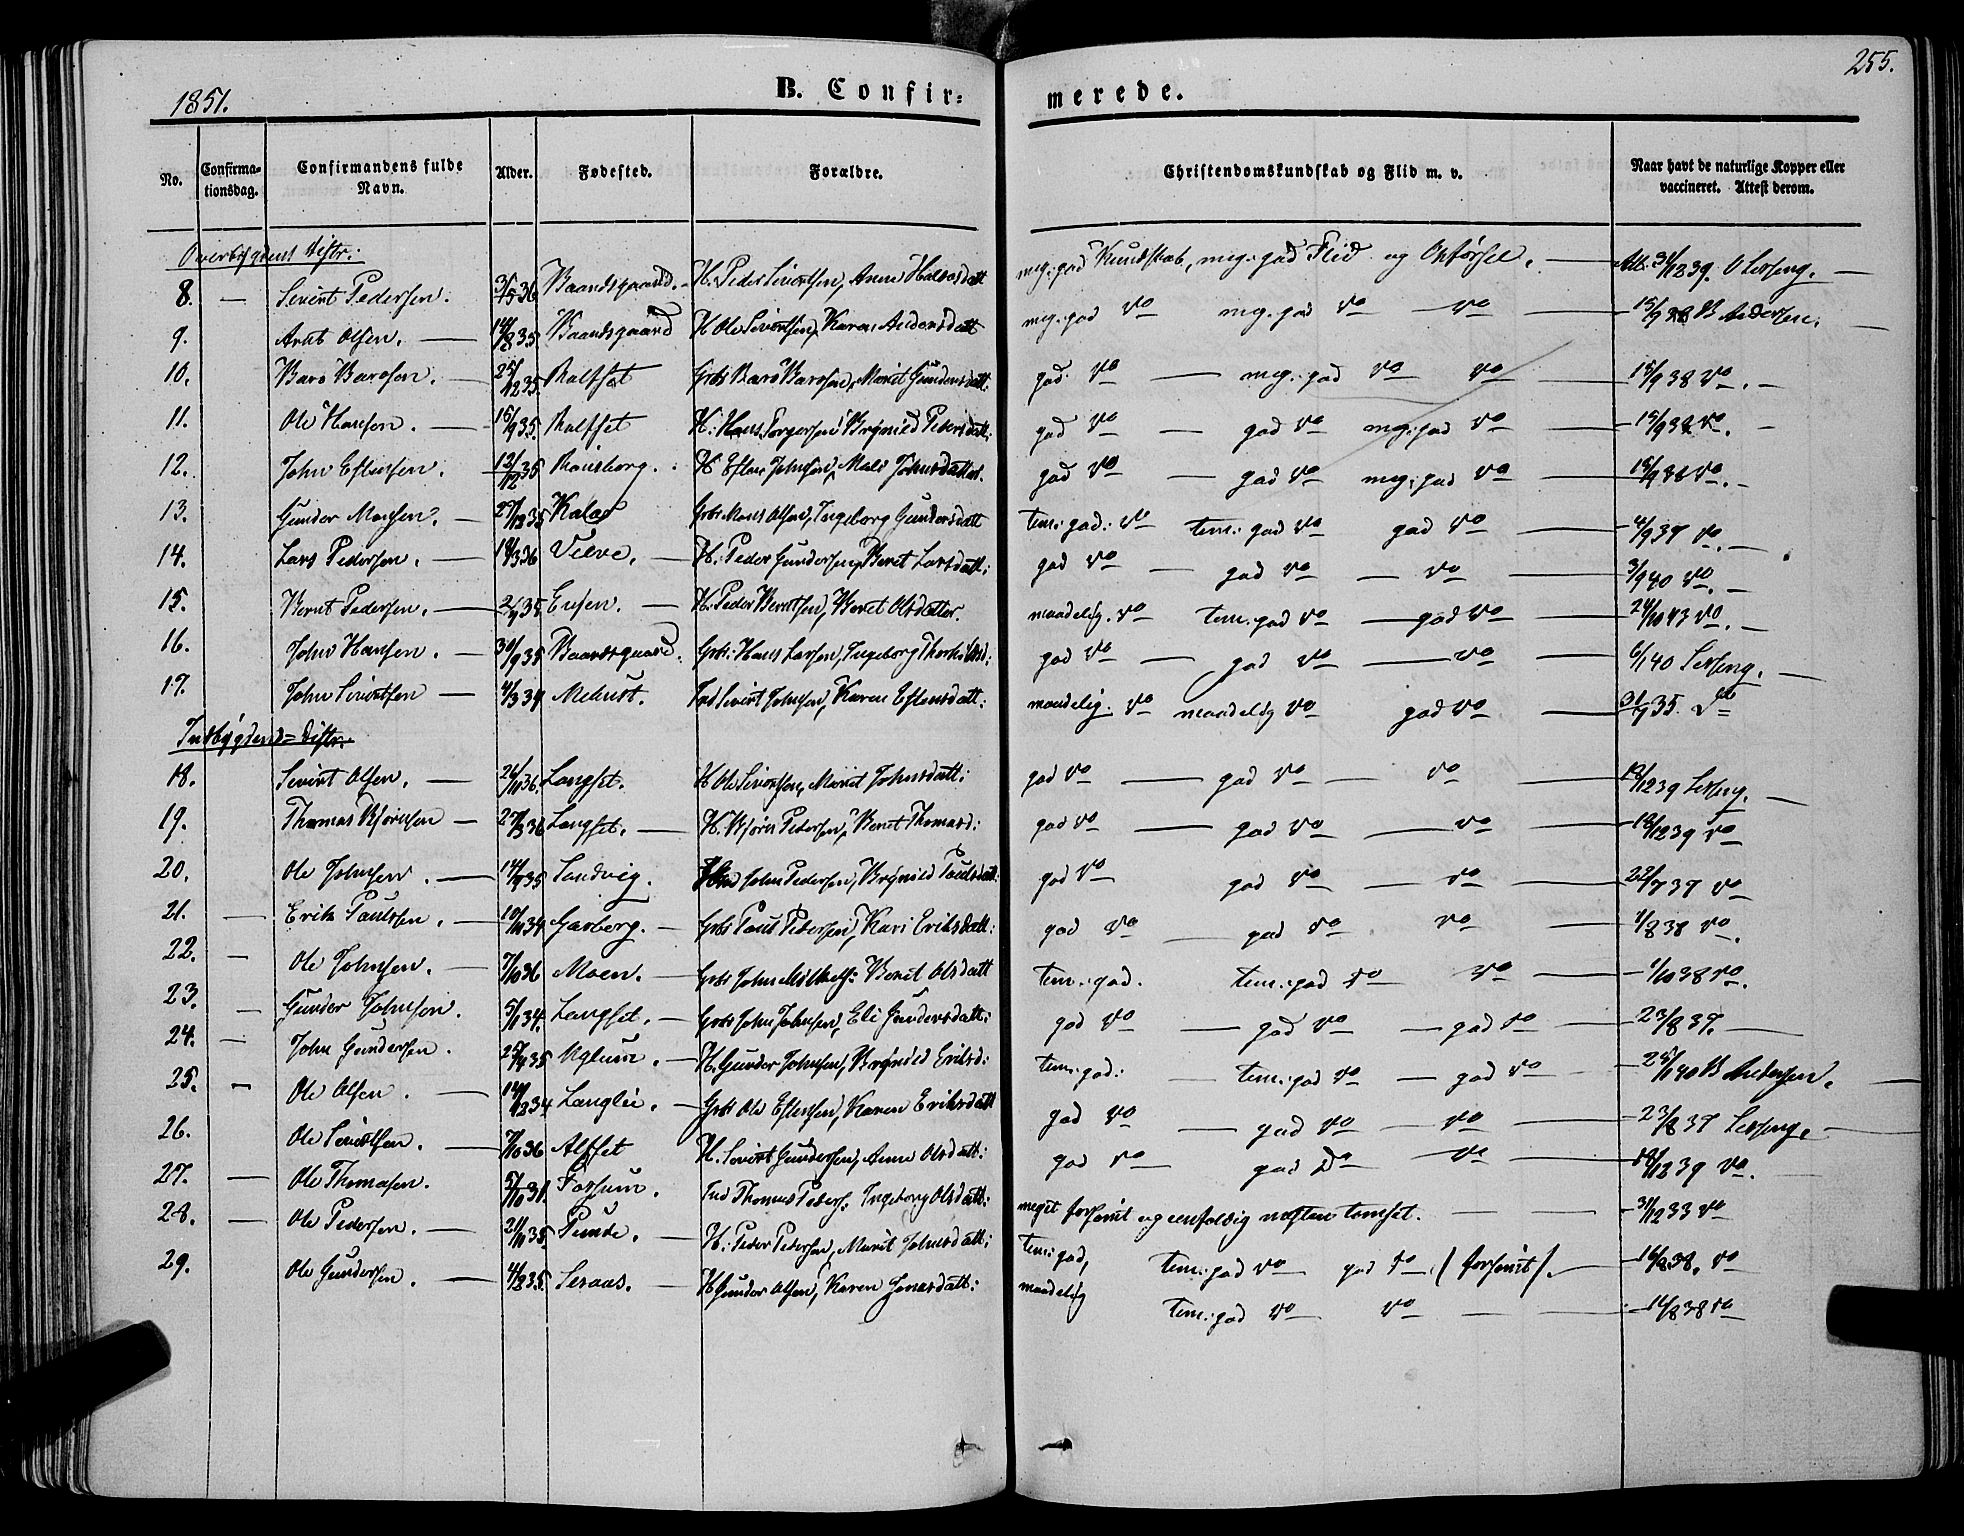 255.
1851.
B. Confir= merede.
No. Confirma-tionsdag. Confirmandens fulde Navn. Alder. Fødested. Forældre. Christendomskundskab og Flid m. v. Naar havt de naturlige Kopper eller vaccineret. Attest derom.
Overbygdens Distr:
8. — Sivert Pedersen. 3/5 36 Baardsgaard. H. Peder Sivertsen, Anne Halvorsdatt meg: god Kundskab, meg: god Flid og Opførsel. — Att. 31/12 39.
9. Arnt Olsen. — 14/8 35 Baardsgaard H Ole Sivertsen, Karen Andersdatt meg. god Do meg. god Do Do — 15/9 38 B Andersen. —
10. Baro Barosen. — 25/12 35. Gbr Baro Barosen, Marit Gundersdatt: god Do — meg: god Do Do — 15/9 38 Do. —
11. Ole Hansen. — 15/9 35. H: Hans Brynild Pedersdatt: god Do — god Do meg: god Do — 15/9 38 Do. —
12. John Estensen. 12/12 35 H Esten Johnsen, Mali Johnsdatter. god Do — god Do meg: god Do — 15/9 38 Do. —
13. Gunder Monsen. — 27/12 35 Gbr Mons Olsen, Ingeborg Gundersdatt tem: god: Do tem: god Do god Do — 4/9 37 Do. —
14. Lars Pedersen. — 18/3 36 H. Peder Gundersen, Beret Larsdatt: god Do — god Do — Do — 3/9 40 Do. —
15. Bernt Pedersen. — H. Peder Berntsen, Beret Olsdatter. maadelig. Do tem. god Do — god Do — 24/10 43 Do. —
16. John Hansen. — 30/9 35 Baardsgaard. Gbr: Hans Larsen, Ingeborg god Do — god Do — Do — 6/1 40 —
17. John Sivertsen — 4/3 34 Melhust. Ind Sivert Johnsen, Karen Estensdatt: maadelig. Do maadelig Do god Do — Do
Indbygdens= Distr.
18. Sivert Olsen. — Langset. H Ole Sivertsen, Marit Johnsdatt: god Do — god Do — Do —
19. Thomas Bjørnsen — Langset. — H. Bjørn Pedersen, Beret Thomasd: god Do — god Do — Do — Do
20. Ole Johnsen. — Sandvig. John Pedersen, Brynild Paulsdatt: god Do god Do — Do — 22/7 37 Do
21. — Erik Paulsen. — 10/10 34 Garberg. — Gbr Paul Pedersen, Kari Eriksdatt: god Do — god Do Do — 1/8 38 Do.
22. — Ole Johnsen. — 7/10 36 Moen. — Gbr John Beret Olsdatt tem: god. tem: god Do Do — 1/10 38 Do.
23. — Gunder Johnsen. 5/1 34. Langset. — Gbr John Johnsen, Eli Gundersdatt: god Do — god Do — god Do — 23/8 37. —
24. — John Gundersen. Uglum. — H. Gunder Johnsen, Brynild Eriksd: tem: god: — tem: god Do — god Do — 25/1 40 B Andersen. —
25. — Ole Olsen. — 14/12 34 Langlie. — Gbr Ole Estensen, Karen Eriksdatt god Do — god Do — Do — 23/8 37 —
26. Ole Sivertsen. — 7/10 36 Alsset H. Sivert Gundersen, Anne Olsdatt: god Do — god Do — Do — Do.
27. — Ole Thomasen. Fossum. Ind Thomas Peders: Ingeborg Olsdatt: meget forsømt og eenfoldig næsten tomset. — — 31/12 33 Do
28. — Ole Pedersen. — Punde. — H: Peder Pedersen, Marit Johnsdatt: tem: god, tem: god Do god Do (forsømt). — 16/8 38. Do
29. Ole Gundersen. — 4/2 35. Seraas. — H Gunder Olsen, Karen Jonsdatt: maadelig tem: god Do Do — — 16/8 38 Do